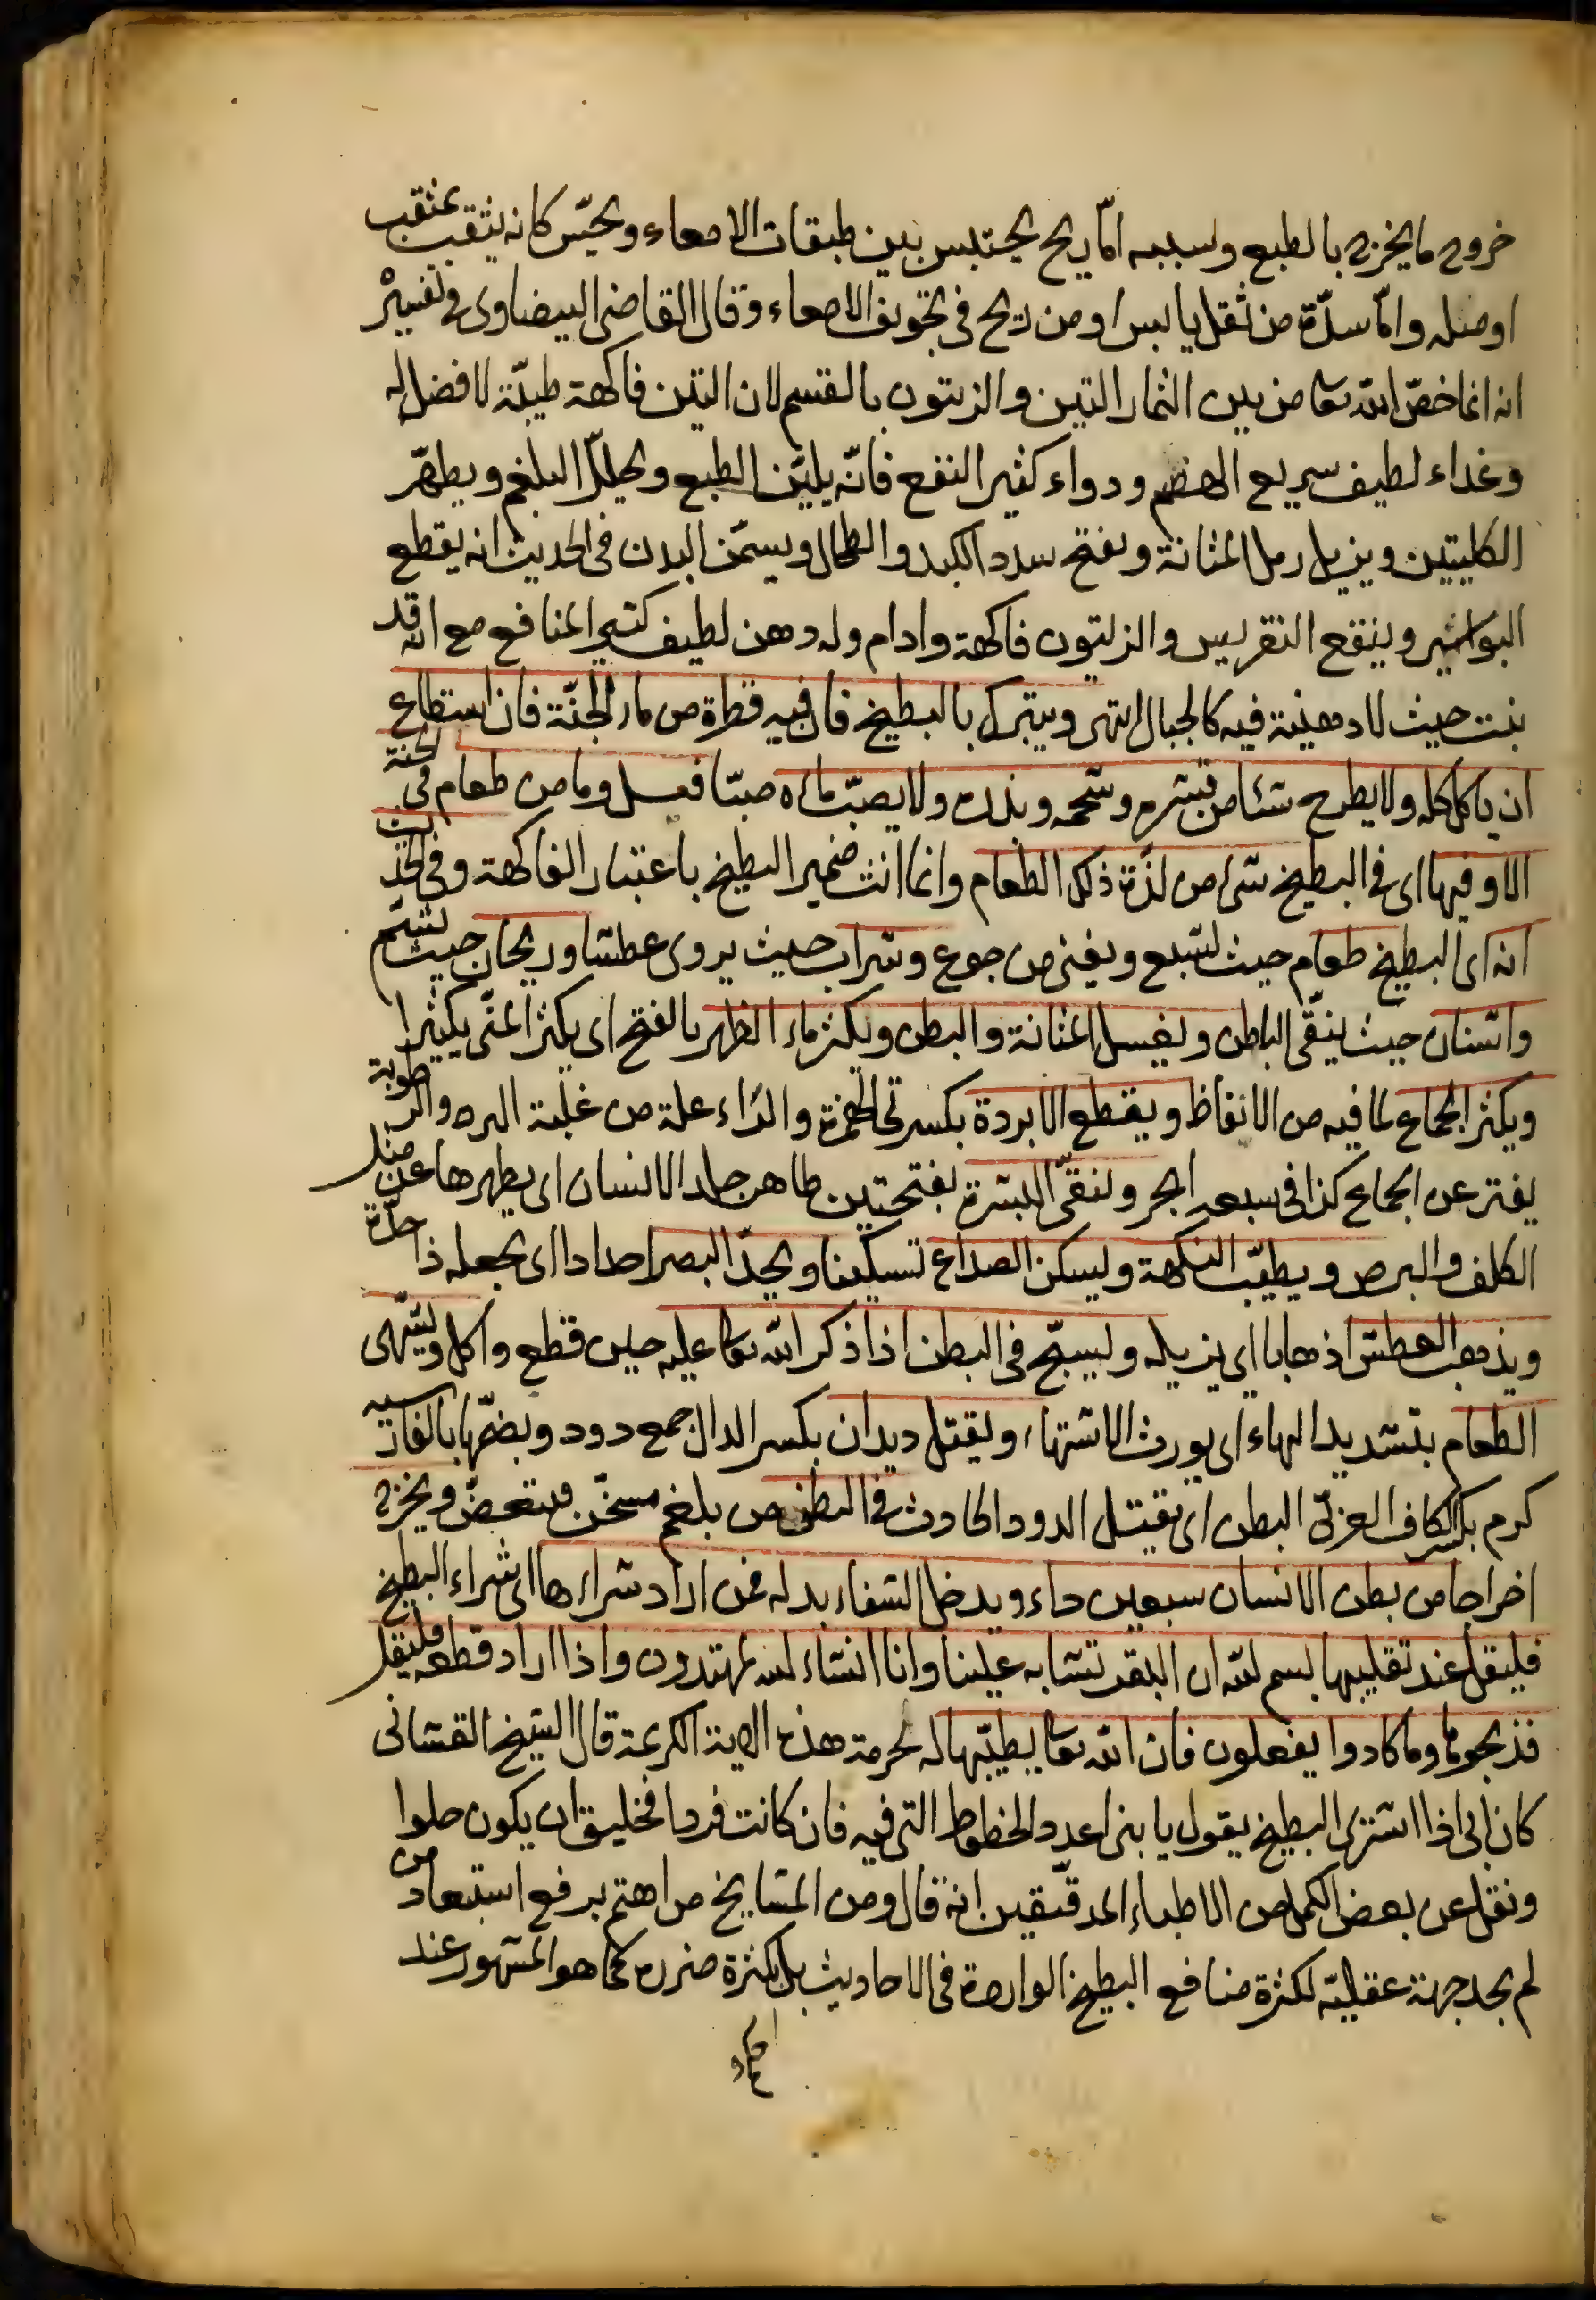 خروج ما يخرج بالطبع وسببه امّا ريح يحتبس بين طبقات الامعاء ويحسّ كانه يثقب بمثقب
او مسله وامّا سدّة من ثقل يابس او من ريح فى تجويف الامعاء وقال القاضى البيضاوى فى تفسيره
انه انما خصّ الله تعا من بين الثمار التين والزيتون بالقسم لان التين فاكهة طيبّة لا فضل له
وغداء لطيف سريع الهضم ودواء كثير النفع فانّه يليّن الطبع ويحللّ البلغم ويطهّر
الكليتين ويزيل رمل المثانة ويفتح سدد الكبد والطحال ويسمّن البدن فى الحديث انه يقطع
البواسير وينفع النقريس والزيتون فاكهة وادام وله دهن لطيف كثير المنافع مع انّه قد
ينبت حيث لا دهنية فيه كالجبال انتهى ويتبرك بالبطيخ فان فيه قطرة من ماء الجنّة فان استطاع
ان ياكل كله ولا يطرح شئا من قشره وشحمه وبذره ولا يصبّ مائه صبّا فعل وما من طعام فى الجنة
الا وفيها اى فى البطيخ شئ من لذّة ذلك الطعام وانما انث ضمير البطيخ باعتبار الفاكهة وفى الحديث
انه اى البطيخ طعام حيث يشبع ويغنى من جوع وشراب حيث يروى عطشا وريحان حيث يشمّ
واشنان حيث ينقّى الباطن ويغسل المثانة والبطن ويكثر ماء الظهر بالفتح اى يكثر المنّى يكثيرا
ويكثر الجماع لما فيه من الانفاظ ويقطع الابردة بكسرتى الهمزة والرّاء علة من غلبة البرد والرطوبة
يفتر عن الجماع كذا فى سبعه ابحر وينقّى البشرة بفتحتين ظاهر جلد الانسان اى يطهرها عن مثل
الكلف والبرص ويطيّب النكهة ويسكن الصداع تسكينا ويحدّ البصر احدادا اى يجعله ذا حدّة
ويذهب العطش اذهابا اى يزيله ويسبّح فى البطن اذا ذكر الله تعا عليه حين قطع واكل ويشّهى
الطعام بتشديد الهاء اى يورث الاشتهاء ويقتل ديدان بكسر الدال جمع دود وبضمّها بالفارسيه
كرم بكسر الكاف العربىّ البطن اى يقتل الدود الحادث فى البطن من بلغم مسخّن متعفّن ويخرج
اخراجا من بطن الانسان سبعين داء ويدخل الشفاء بدله فمن اراد شراءها اى شراء البطيخ
فليقل عند تقليبها بسم الله ان البقر تشابه علينا وانا انشاء الله لمهتدون واذا اراد قطعه فليقل
فذبحوها وما كادوا يفعلون فان الله تعا يطيّبها له بحرمة هذه الاية الكريمة قال الشيخ القشانى
كان ابى اذا اشترى البطيخ يقول يا بنى اعدد الخطوط التى فيه فان كانت فردا فخليق ان يكون حلوا
ونقل عن بعض الكمل من الاطباء المدقّقين انه قال ومن المشايخ من اهتم برفع استبعاد من
لم يجد جهة عقليّه لكثرة منافع البطيخ الواردة فى الاحاديث بل لكثرة ضرره كما هو المشهور عند